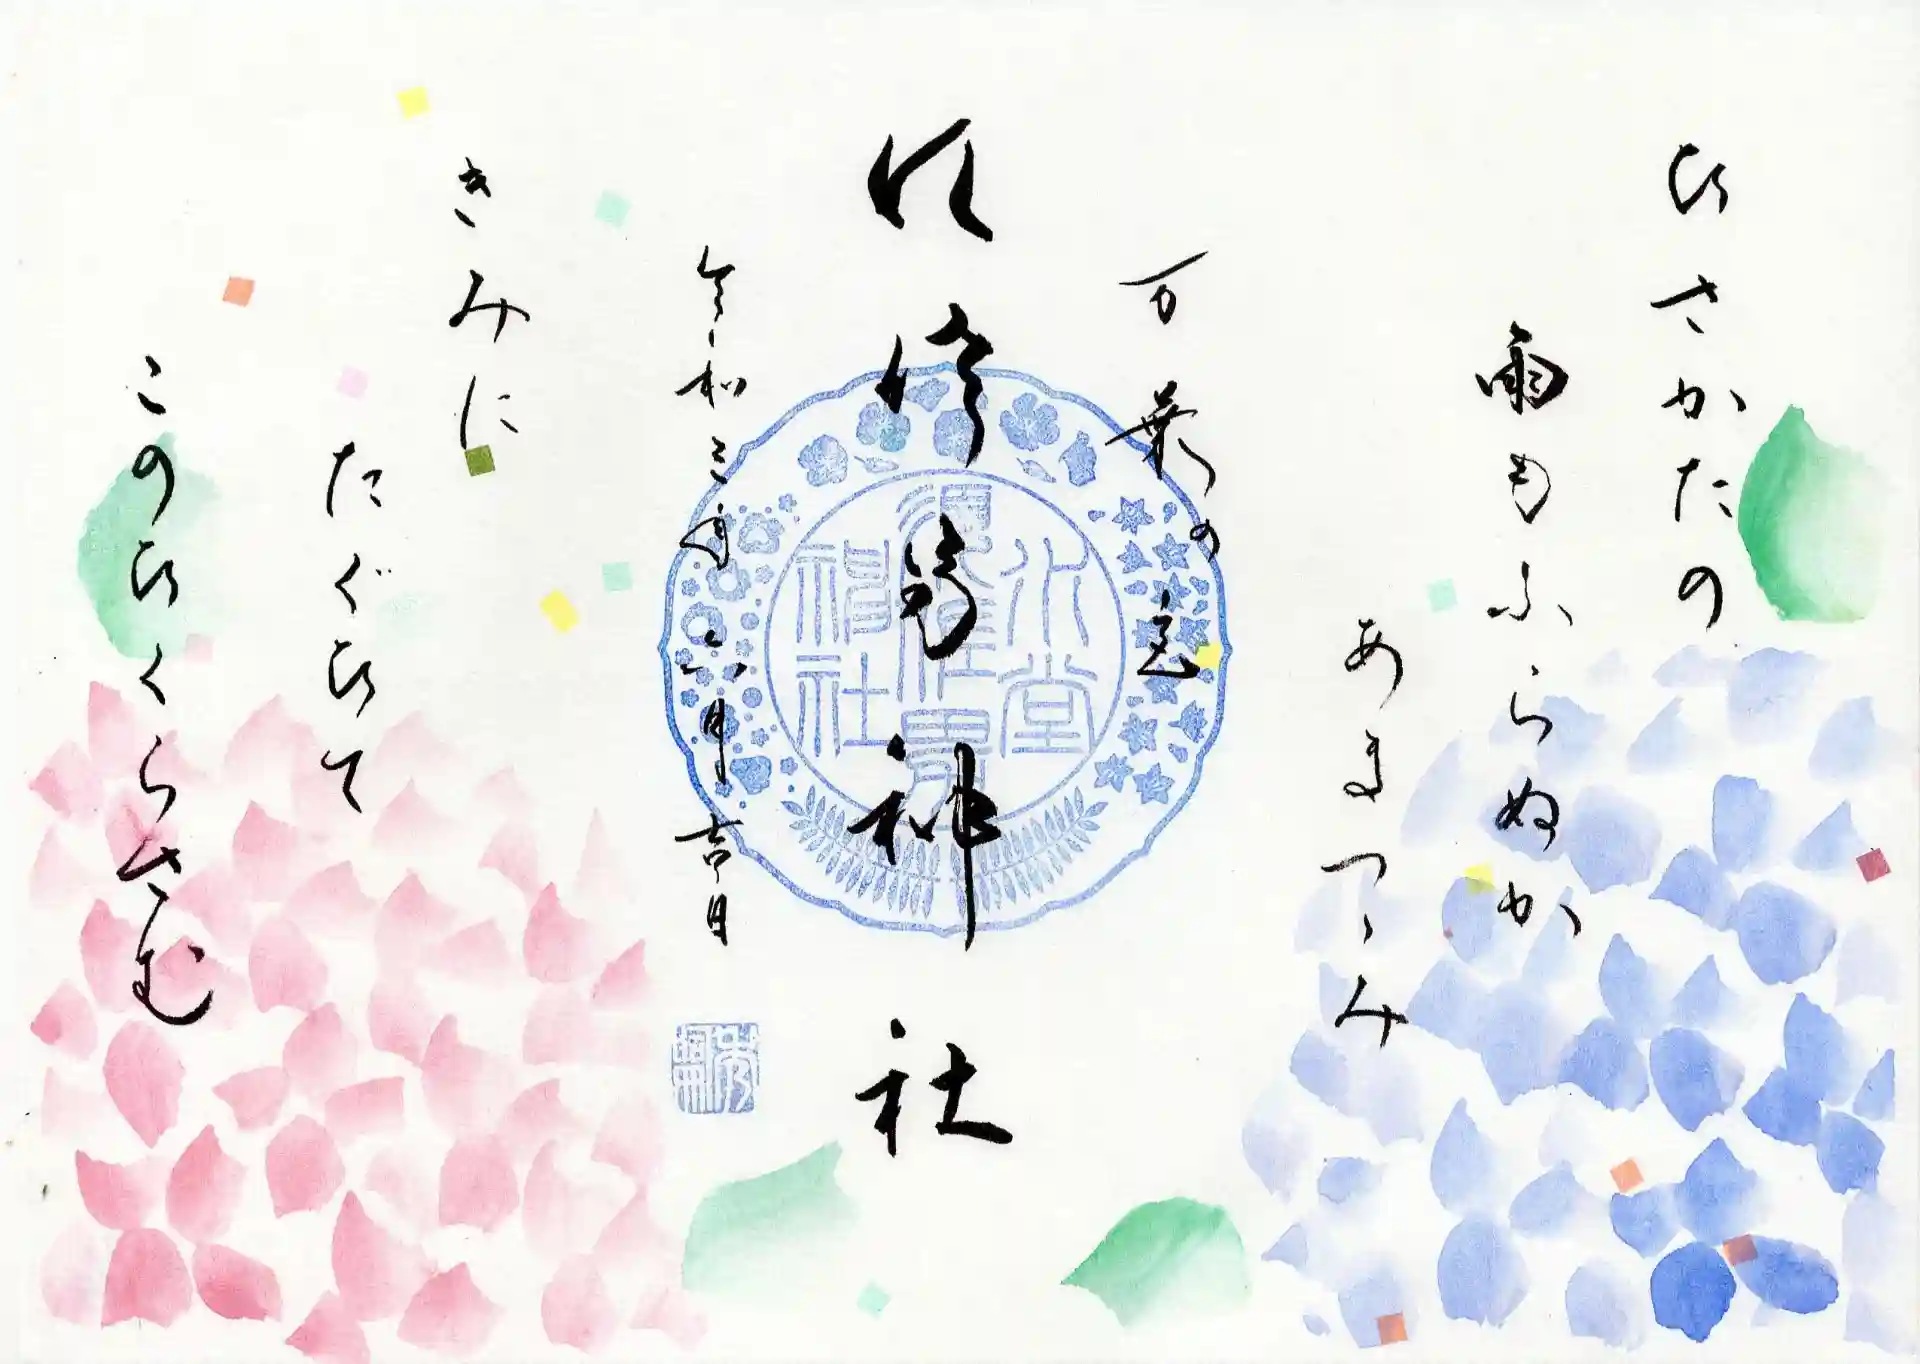 ひさかたの
雨もふらぬか
あまつつみ
万葉の恋
須佐男神社
水堂
須佐男
神社
令和三年六月吉日
きみに
たぐひて
このひくらさむ